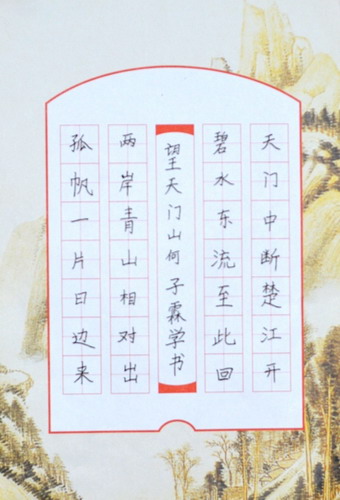 天门中断楚江开
碧水东流至此回
望天门山何子霖学书
两岸青山相对出
孤帆一片日边来